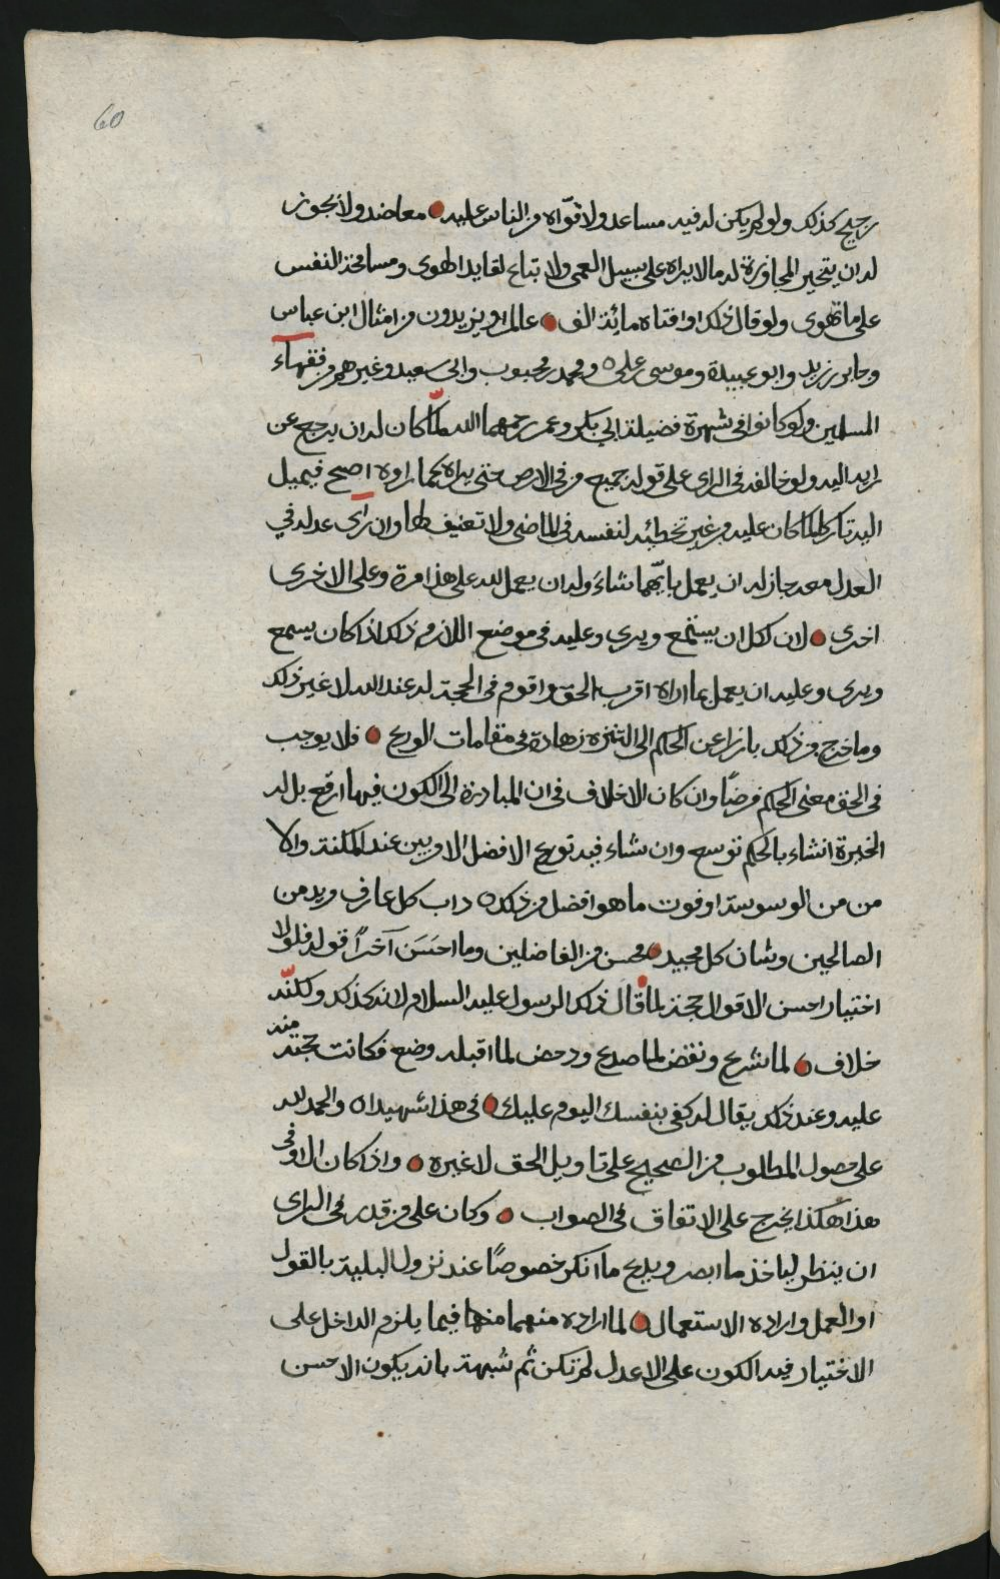 60
رجح كذلك ولو لم يكن له فيه مساعد ولا قوّاه من الناس عليه معاضد ولا يجوز
له ان يتحير المجاوزة له ما لا يراه على سبيل العمى ولا تباع لقايد الهوى ومسامحة النفس
على ما تهوى ولو قال ذلك او افتاه مائة الف عالم او يزيدون من امثال ابن عباس
وجابر بن زيد وابو عبيدة وموسى بن علي ومحمد بن محبوب وابي سعيد وغيرهم من فقهاء
المسلمين ولو كانوا في شهرة فضيلة ابي بكر وعمر رحمهما الله لمّا كان له ان يرجع عن
رايه اليه ولو خالفه في الراى على قوله جميع من في الارض حتى يراه كما راوه اصح فيميل
اليه تاركا لما كان عليه من غير تخطئه لنفسه في الماضى ولا تعنيف لها وان راى عدله في
العدل معه جاز له ان يعمل بايّهما شاءَ وله ان يعمل لله على هذا مرة وعلى الاخرى
اخرى لان لكل ان يستمع ويرى وعليه في موضع اللازم ذلك اذا كان يسمع
ويرى وعليه ان يعمل بما اراه اقرب الحق واقوم في الحجة له عند الله لا غير ذلك
وما خرج من ذلك بارزا عن الحكم الى التنزه زهادة في مقامات الورع فلا يوجب
في الحق معنى الحكم فرضًا وان كان الاختلاف في ان المبادرة الى الكون فيها ارفع بل له
الخيرة ان شاء بالحكم توسع وان شاء فيه تورع الافضل الاوبين عند المكنة والا
من من الوسوسة او فوت ما هو افضل من ذلك داب كل عارف وديدن
الصالحين وشان كل مجيد محسن من الفاضلين وما احسَنَ آخراً قوله فلولا
اختيار احسن الاقوال حجة لما قال ذلك الرسول عليه السلام لانه كذلك ولكنّه
خلاف لما شرع ونقض لما صدع ودحض لما اقبله وضع فكانت حجته منه
عليه وعند ذلك يقال له كفى بنفسك اليوم عليك في هذا شهيدا والحمد لله
على حصول المطلوب من الصحيح على تاويل الحق لا غيره واذا كان الاوفى
هذا هكذا يخرج على الاتفاق في الصواب وكان على من قدر في الراى
ان ينظر لياخذ ما ابصر ويدع ما انكر خصوصًا عند نزول البلية بالقول
او العمل وارادة الاستعمال لما اراده منهما منها فيما يلزم الداخل على
الاختيار فيه الكون على الاعدل لم تكن ثم شبهة بانه يكون الاحسن